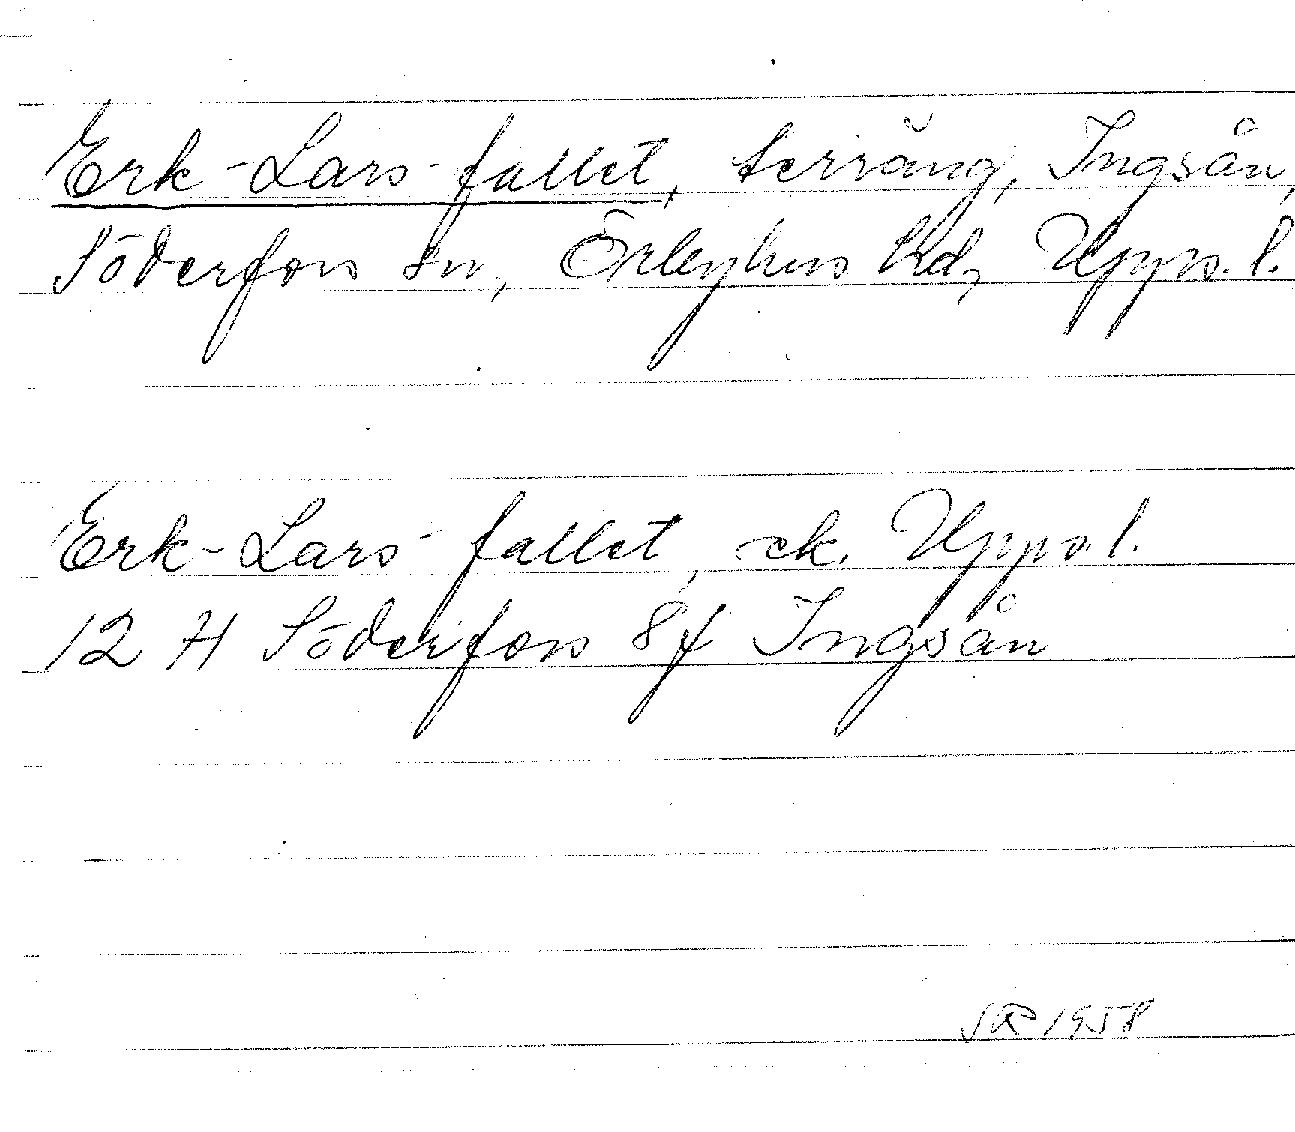 Erk-Lars-fallet, terräng, Ingsån,
Söderfors sn, Örbyhus hd, Upps. l.
Erk-Lars-fallet, ek. Upps. l.
12 H Söderfors 8f Ingsån
1958